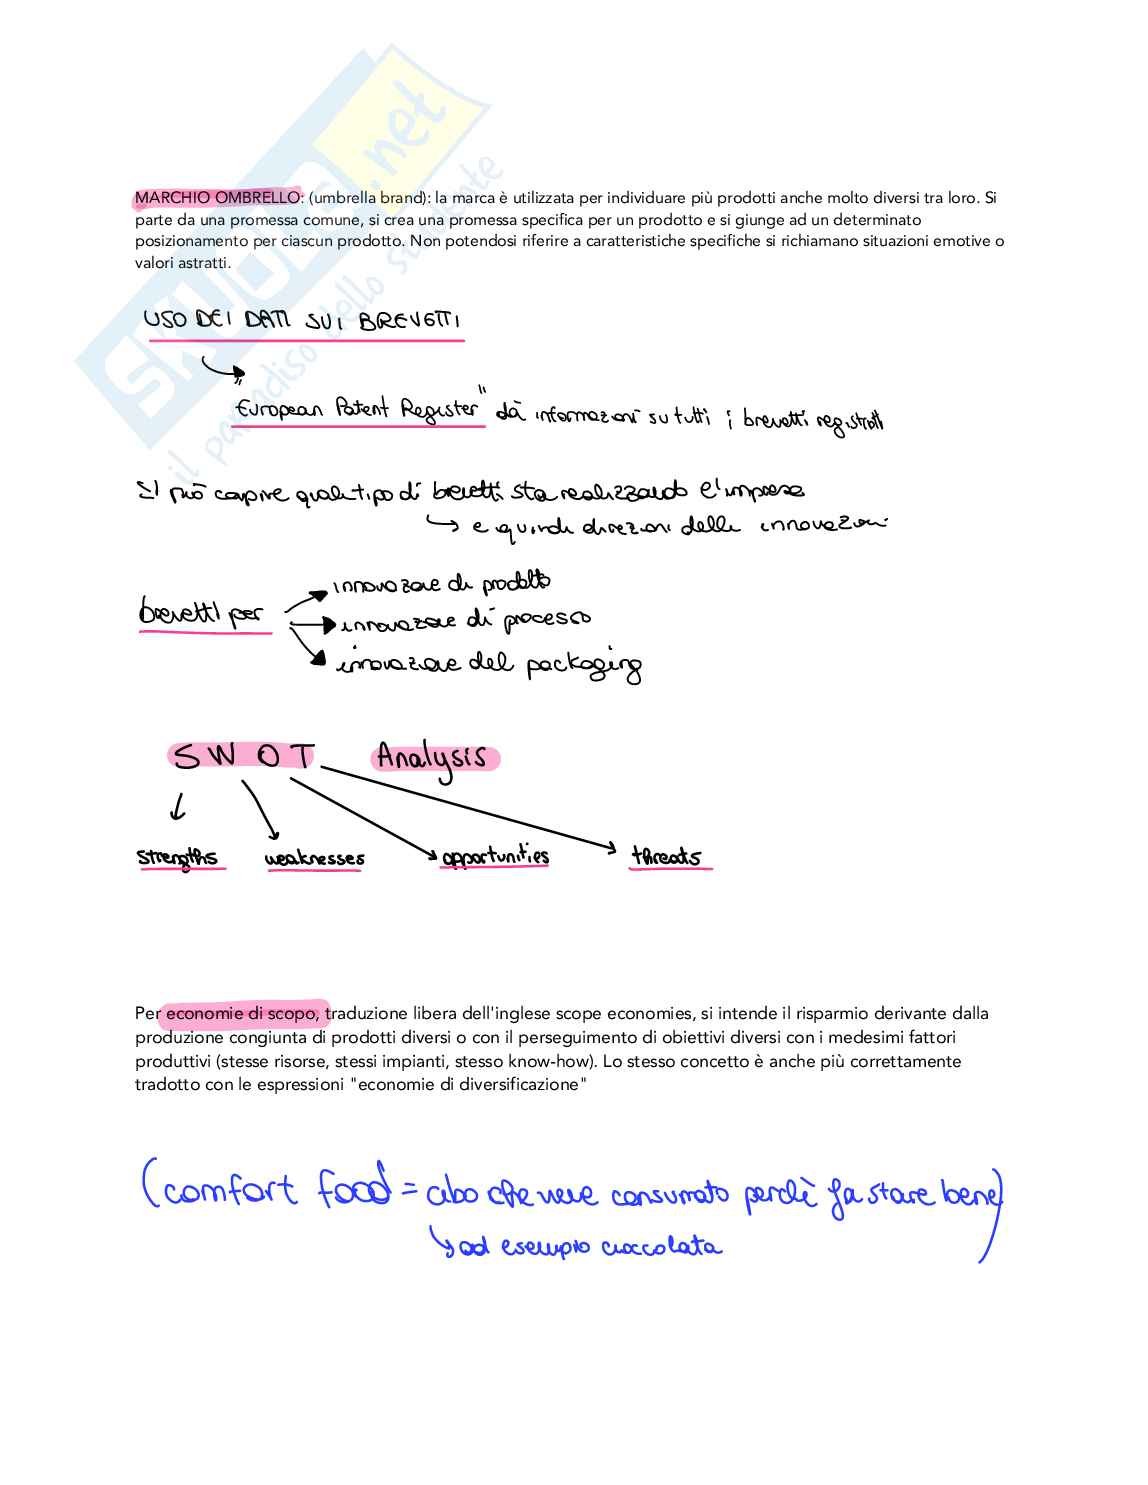 SKUOLA.net
il paradiso dello studente
MARCHIO OMBRELLO: (umbrella brand): la marca è utilizzata per individuare più prodotti anche molto diversi tra loro. Si
parte da una promessa comune, si crea una promessa specifica per un prodotto e si giunge ad un determinato
posizionamento per ciascun prodotto. Non potendosi riferire a caratteristiche specifiche si richiamano situazioni emotive o
valori astratti.
USO DEI DATI SUI BREVETTI
"European Patent Register" dà informazioni su tutti i brevetti registrati
Si può capire quale tipo di brevetti sta realizzando l'impresa
e quindi direzioni delle innovazioni
brevetti per
innovazione di prodotto
innovazione di processo
innovazione del packaging
SWOT Analysis
strengths weaknesses opportunities threats
Per economie di scopo, traduzione libera dell'inglese scope economies, si intende il risparmio derivante dalla
produzione congiunta di prodotti diversi o con il perseguimento di obiettivi diversi con i medesimi fattori
produttivi (stesse risorse, stessi impianti, stesso know-how). Lo stesso concetto è anche più correttamente
tradotto con le espressioni "economie di diversificazione"
(comfort food = cibo che viene consumato perchè fa stare bene)
ad esempio cioccolata